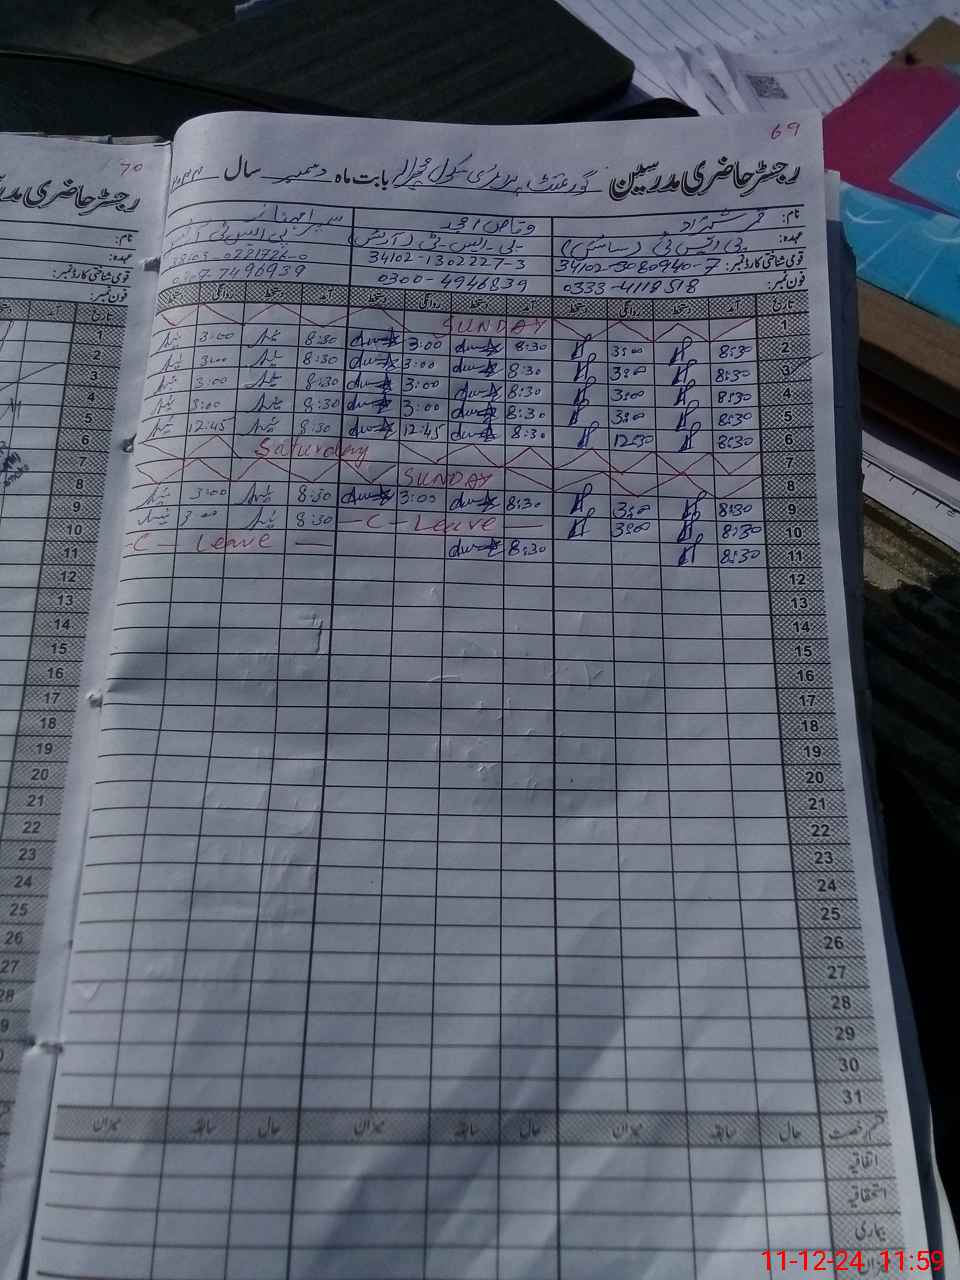 69
رجسٹر حاضری مدرسین گورنمنٹ پرائمری سکول بابت ماہ دسمبر سال
نام: وقاص احمد
عہدہ: پی ایس ٹی (سائنس) پی۔ایس۔ٹی (آرٹس) پی ایس ٹی آرٹس
قومی شناختی کارڈ نمبر: 34102-3080940-7 34102-1302227-3
فون نمبر: 0333-4118518 0300-4946839 7496939
تاریخ آمد دستخط روانگی دستخط آمد دستخط روانگی دستخط آمد دستخط روانگی دستخط
1 SUNDAY
2 8:30 3:00 8:30 3:00 8:30 3:00
3 8:30 3:00 8:30 3:00 8:30 3:00
4 8:30 3:00 8:30 3:00 8:30 3:00
5 8:30 3:00 8:30 3:00 8:30 3:00
6 8:30 12:30 8:30 12:45 8:30 12:45
7 Saturday
8 SUNDAY
9 8:30 3:00 8:30 3:00 8:30 3:00
10 8:30 3:00 – C – Leave — 8:30 3:00
11 8:30 8:30 – C – Leave —
12
13
14
15
16
17
18
19
20
21
22
23
24
25
26
27
28
29
30
31
قسم رخصت حال سابقہ میزان حال سابقہ میزان حال سابقہ میزان
اتفاقیہ
استحقاقیہ
بیماری
میزان
70
رجسٹر حاضری
نام:
عہدہ:
قومی شناختی کارڈ نمبر:
فون نمبر:
تاریخ آمد
1
2
3
4
5
6
7
8
9
10
11
12
13
14
15
16
17
18
19
20
21
22
23
24
25
26
27
28
11-12-24 11:59